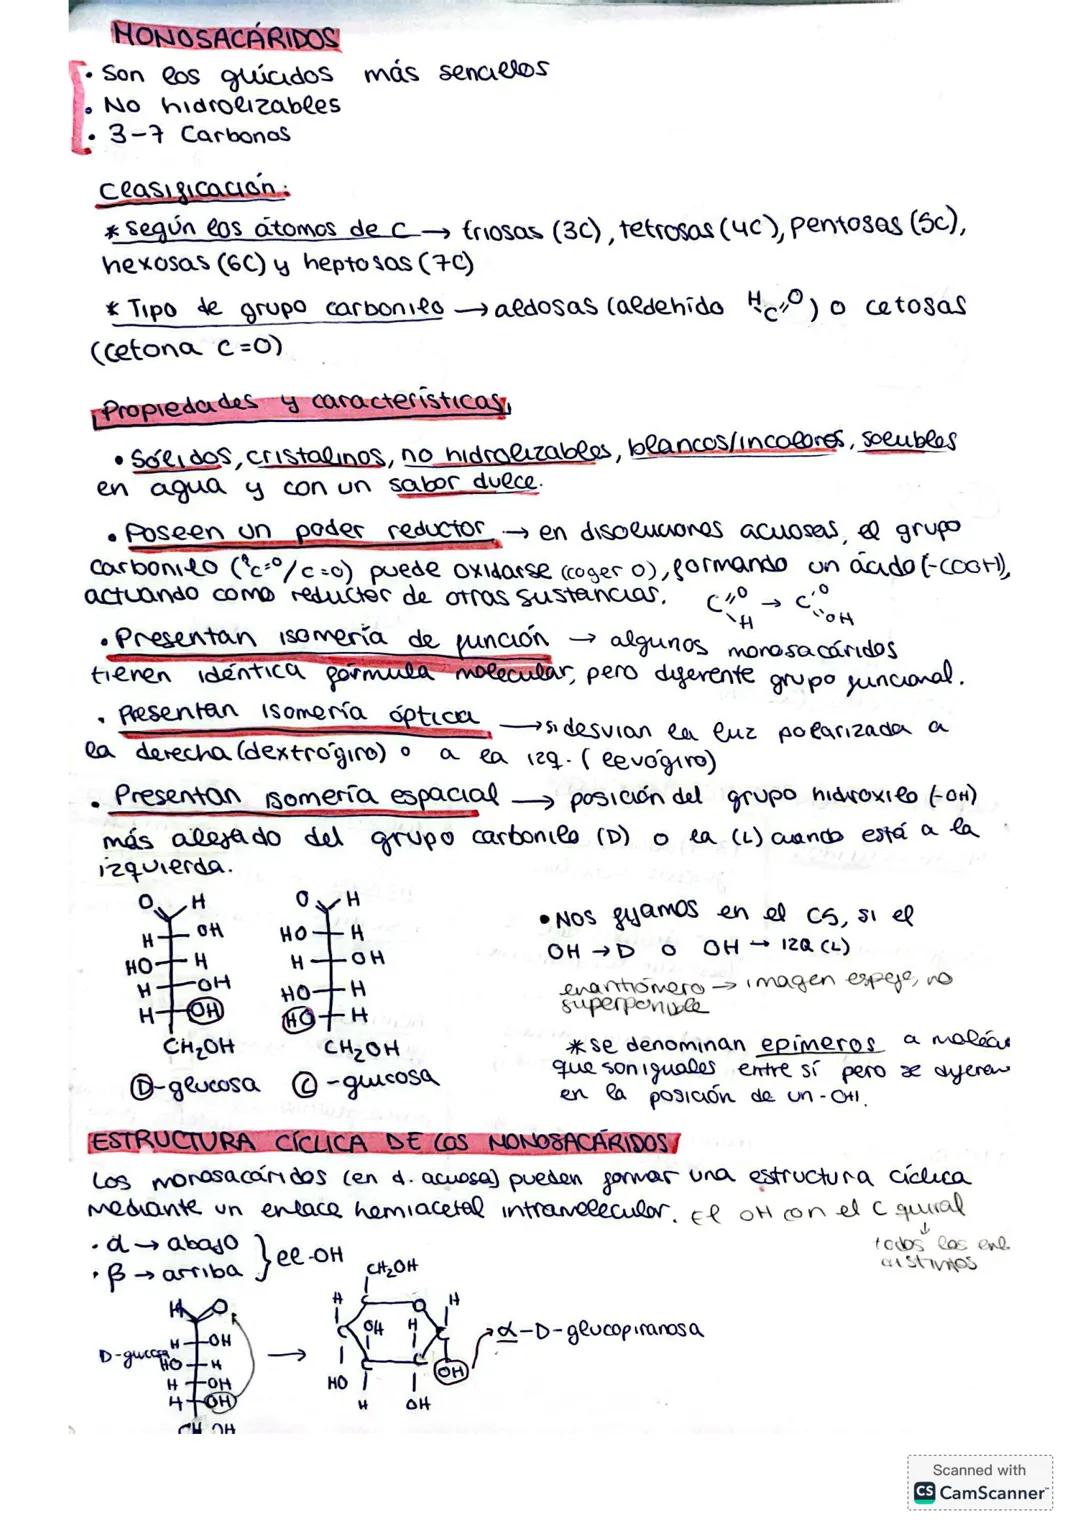 MONOSACÁRIDOS
• Son los glúcidos más sencillos
• No hidrolizables
• 3-7 Carbonos
Clasificación:
* Según los átomos de C → triosas (3C), tetrosas (4C), pentosas (5C),
hexosas (6C) y heptosas (7C)
* Tipo de grupo carbonilo → aldosas (aldehído H C O) o cetosas
(cetona C=O)
Propiedades y características
• Sólidos, cristalinos, no hidrolizables, blancos/incoloros, solubles
en agua y con un sabor dulce.
• Poseen un poder reductor → en disoluciones acuosas, el grupo
carbonilo (C=O/C=O) puede oxidarse (coger O), formando un ácido (-COOH),
actuando como reductor de otras sustancias. C O H → C O OH
• Presentan isomería de función → algunos monosacáridos
tienen idéntica fórmula molecular, pero diferente grupo funcional.
• Presentan isomería óptica → si desvian la luz polarizada a
la derecha (dextrógiro) o a la izq. (levógiro)
• Presentan isomería espacial → posición del grupo hidroxilo (-OH)
más alejado del grupo carbonilo (D) o la (L) cuando está a la
izquierda.
O H O H
H OH HO H
HO H H OH
H OH HO H
H OH HO H
CH₂OH CH₂OH
D-glucosa L-glucosa
• Nos fijamos en el C5, si el
OH → D o OH → IZQ (L)
enantiómero → imagen espejo, no
superponible
* se denominan epímeros a moléculas
que son iguales entre sí pero se dyeren
en la posición de un -OH.
ESTRUCTURA CÍCLICA DE LOS MONOSACÁRIDOS
Los monosacáridos (en d. acuosa) pueden formar una estructura cíclica
mediante un enlace hemiacetal intramolecular. El OH con el C quiral
↓
todos los enl.
distintos
• α → abajo } el -OH
• β → arriba
CH₂OH
H O
H O H
H OH
C OH H C → α-D-glucopiranosa
D-glucosa HO H
H OH
H OH
HO C C OH
H OH
CH OH
Scanned with
CS CamScanner